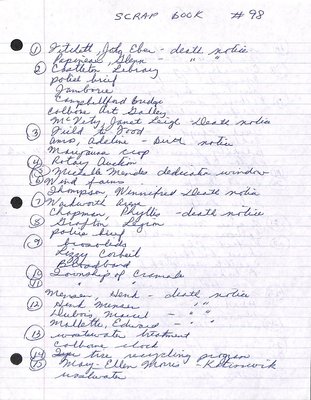 SCRAP BOOK #98
① Fatchett, Joly Eber - death notice
Papineau, Glenn - " "
② Castleton Library
police brief
Jamboree
Campbellford bridge
Colborne Art Gallery
McVety, Janet Leigh - Death notice
③ Field to Food
Ams, Adeline - Birth notice
Marijuana crop
④ Rotary Auction
⑤ Michelle Mendes dedication window
⑥ Wind farms
Thompson, Winnifred Death notice
⑦ Warkworth
Chapman, Phyllis - death notice
⑧ Grafton Legion
police brief
⑨ broadbeds
Lizzy Corbeil
Broadband
⑩ Township of Cramahe
⑪ " " "
Menser, Henk - death notice
⑫ Henk Menser " "
Dubois, Marcel - " "
Mallette, Edward - " "
⑬ wastewater treatment
Colborne clock
⑭ tire recycling program
⑮ Mary-Ellen Morris -
wastewater